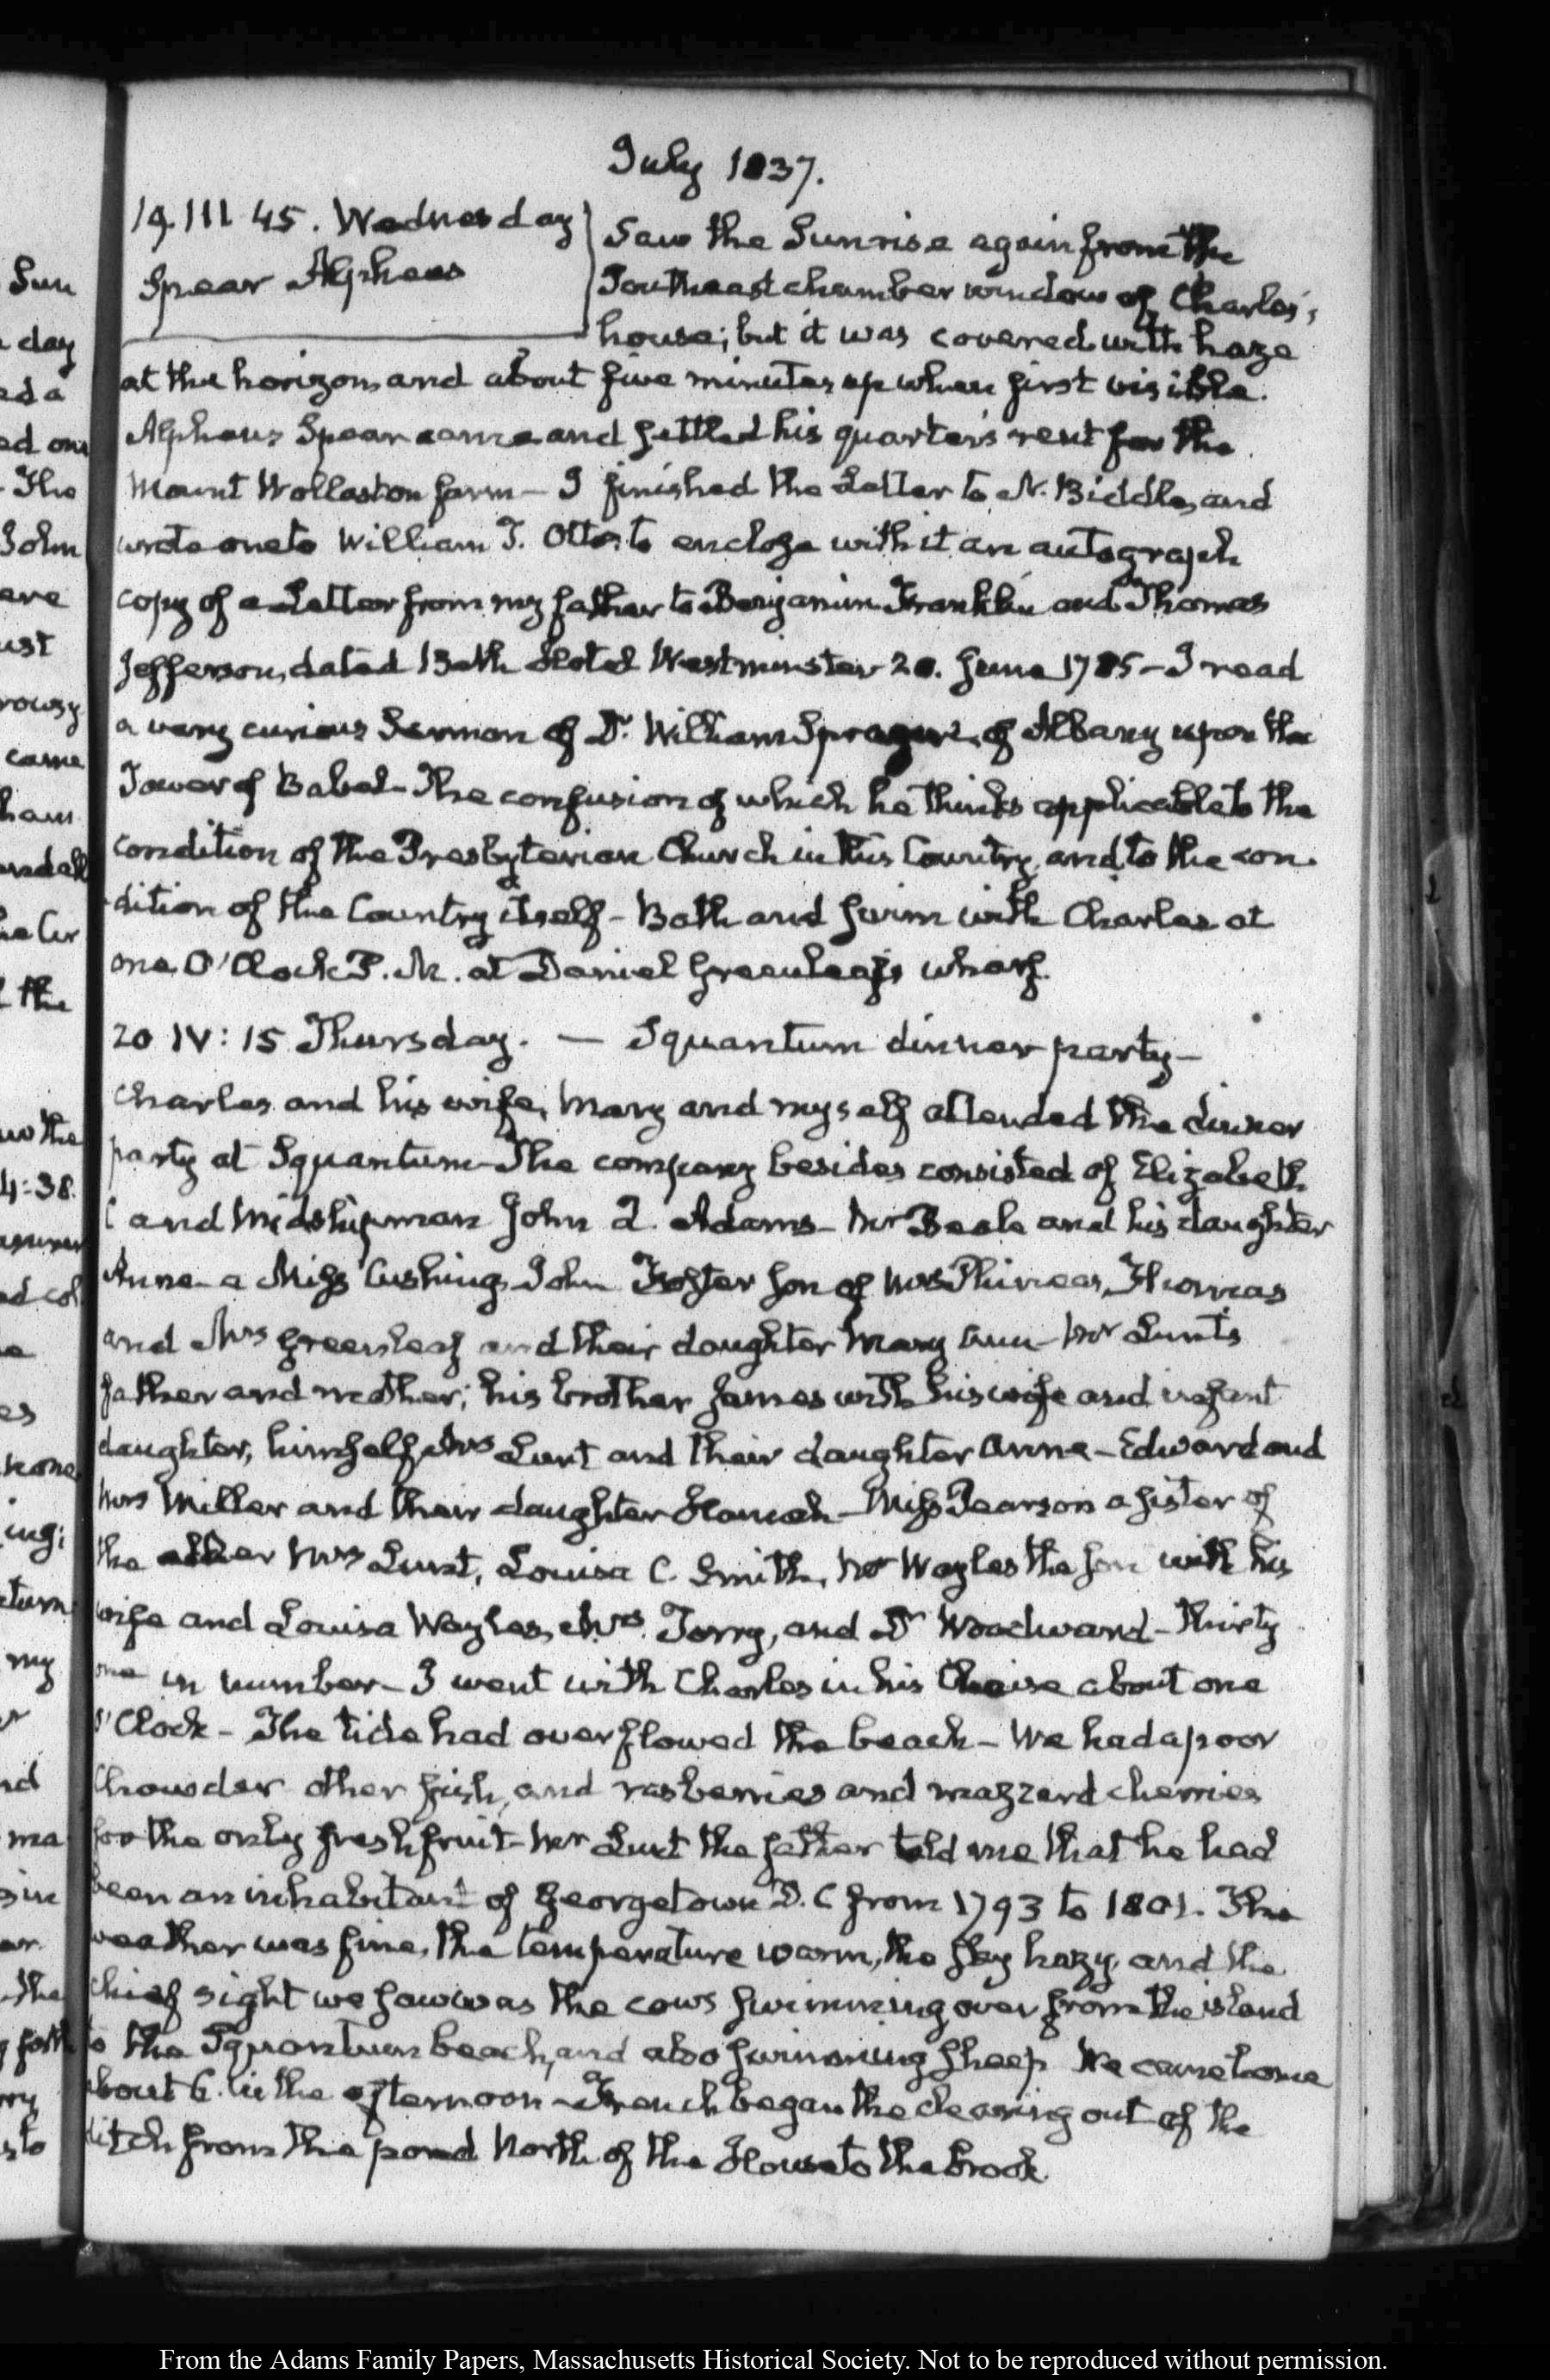 July 1837.
19. III 45. Wednesday
Spear Alpheus
Saw the Sunrise again from the
Southeast chamber window of Charles's
house; but it was covered with haze
at the horizon, and about five minutes up when first visible.
Alpheus Spear came and settled his quarter's rent for the
Mount Wollaston farm — I finished the Letter to N. Biddle, and
wrote one to William T. Otto, to enclose with it an autograph
copy of a Letter from my father to Benjamin Franklin and Thomas
Jefferson, dated Bath Hotel Westminster 20. June 1785 — I read
a very curious Sermon of Dr. William Sprague, of Albany upon the
Tower of Babel — The confusion of which he thinks applicable to the
condition of the Presbyterian Church in this Country, and to the con-
dition of the Country itself — Bath and swim with Charles at
one O'Clock P. M. at Daniel Greenleaf's wharf.
20 IV: 15 Thursday. — Squantum dinner party —
Charles and his wife, Mary and myself attended the dinner
party at Squantum — The company besides consisted of Elizabeth
C and Midshipman John Q. Adams — Mr Beale and his daughter
Anne — a Miss Cushing, John Foster son of Mrs Phineas, Thomas
and Mrs Greenleaf and their daughter Mary Ann — Mr Lunt's
father and mother; his brother James with his wife and infant
daughter, himself, Mrs Lunt and their daughter Anne — Edward and
Mrs Miller and their daughter Hannah — Miss Pearson a sister of
the elder Mrs Lunt, Louisa C. Smith, Mr Wayles the son with his
wife and Louisa Wayles, Mrs Torry, and Dr Woodward — Thirty
one in number — I went with Charles in his Chaise about one
O'Clock — The tide had overflowed the beach — We had a poor
Chowder other fish, and rasberries and mazzard cherries
for the only fresh fruit — Mr Lunt the father told me that he had
been an inhabitant of Georgetown D. C from 1793 to 1801. The
weather was fine, the temperature warm, the sky hazy, and the
chief sight we saw was the cows swimming over from the island
to the Squantum beach, and also swimming sheep We came home
about 6. in the afternoon — French began the clearing out of the
ditch from the pond North of the House to the brook.
Sun
day
The
John
ust
came
the
4:38.
none
my
the
to
From the Adams Family Papers, Massachusetts Historical Society. Not to be reproduced without permission.